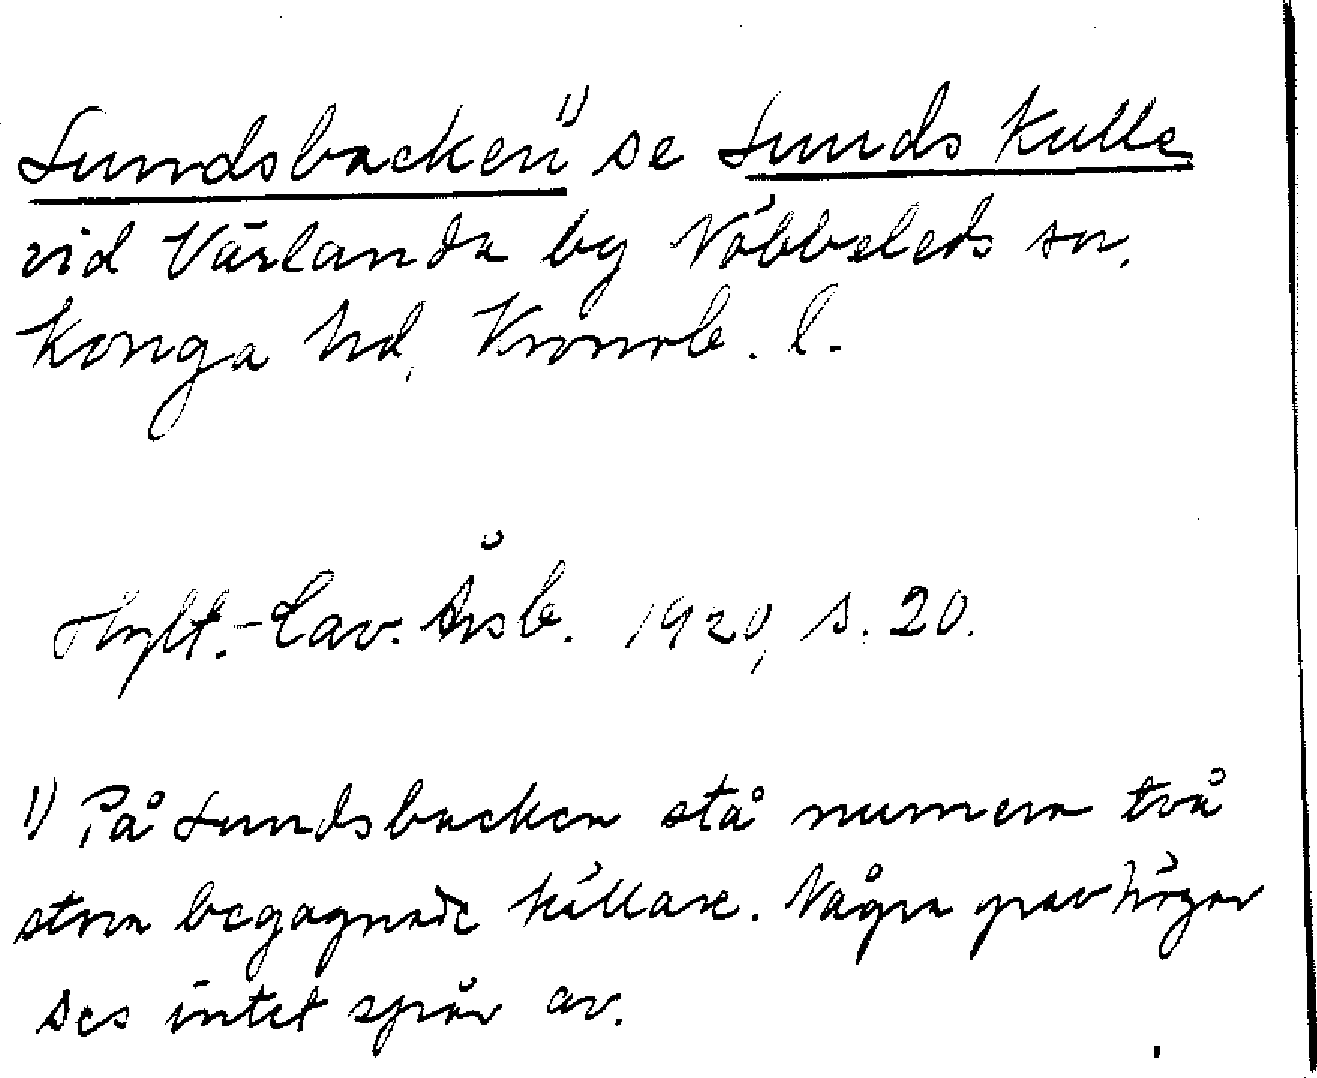 Lundsbacken ¹⁾ se Lunds Kulle
vid Värlanda by Nöbbeleds sn.
Konga hd, Kronob. l.
Hylt.-Cav. Årsb. 1920, s. 20.
¹⁾ På Lundsbacken stå numera två
stora begagnade källare. Några gravhögar
ses intet spår av.